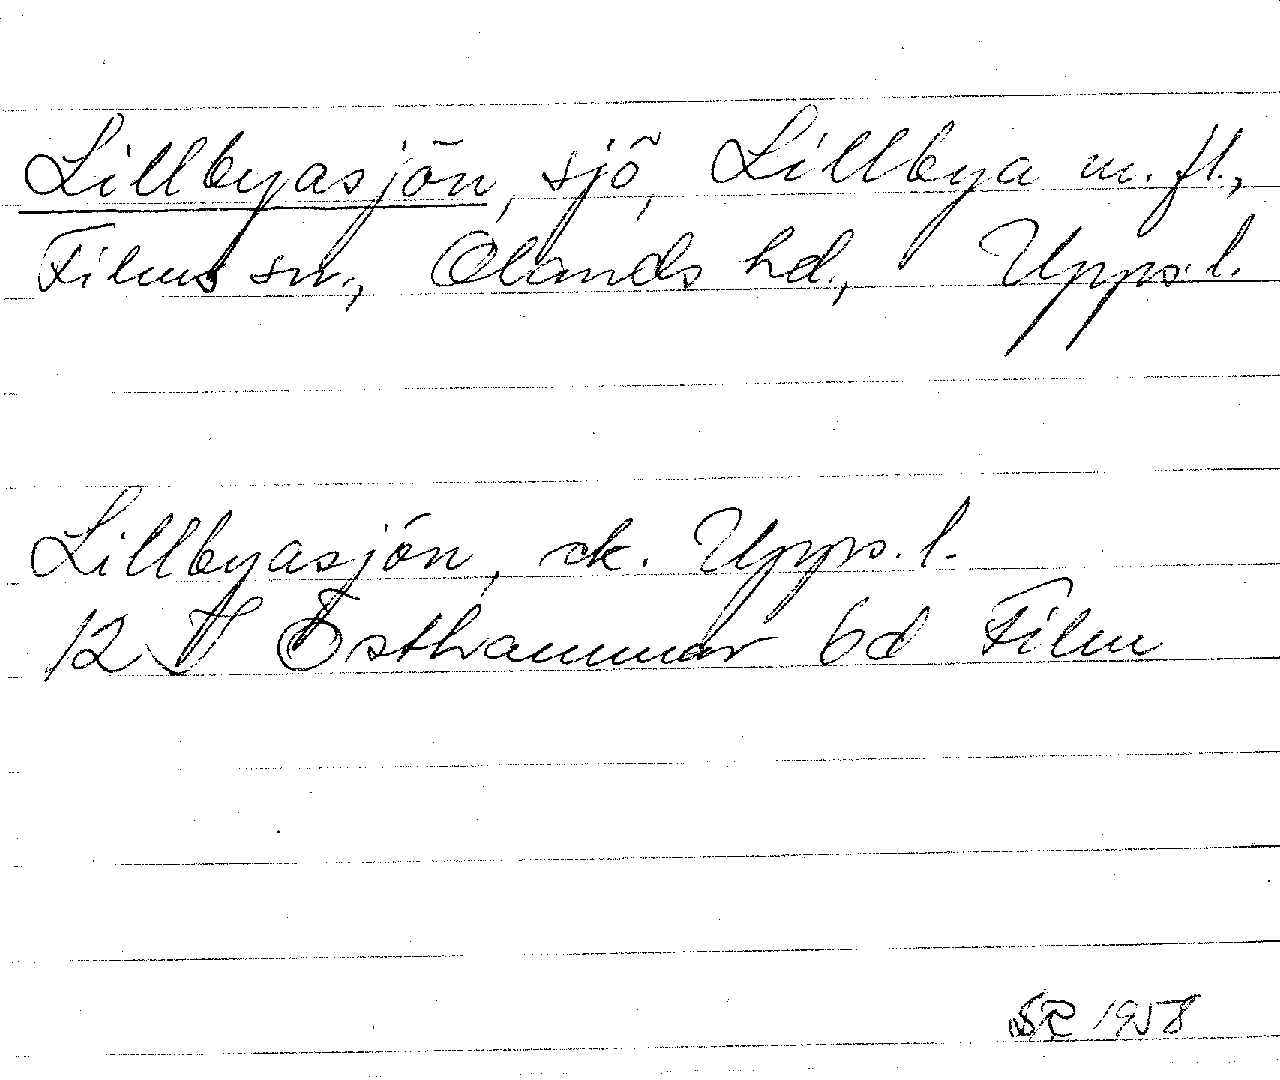 Lillbyasjön, sjö, Lillbya m. fl.,
Films sn., Olands hd., Upps. l.
Lillbyasjön, ek. Upps. l.
12 I Östhammar 6d Film
SR 1958